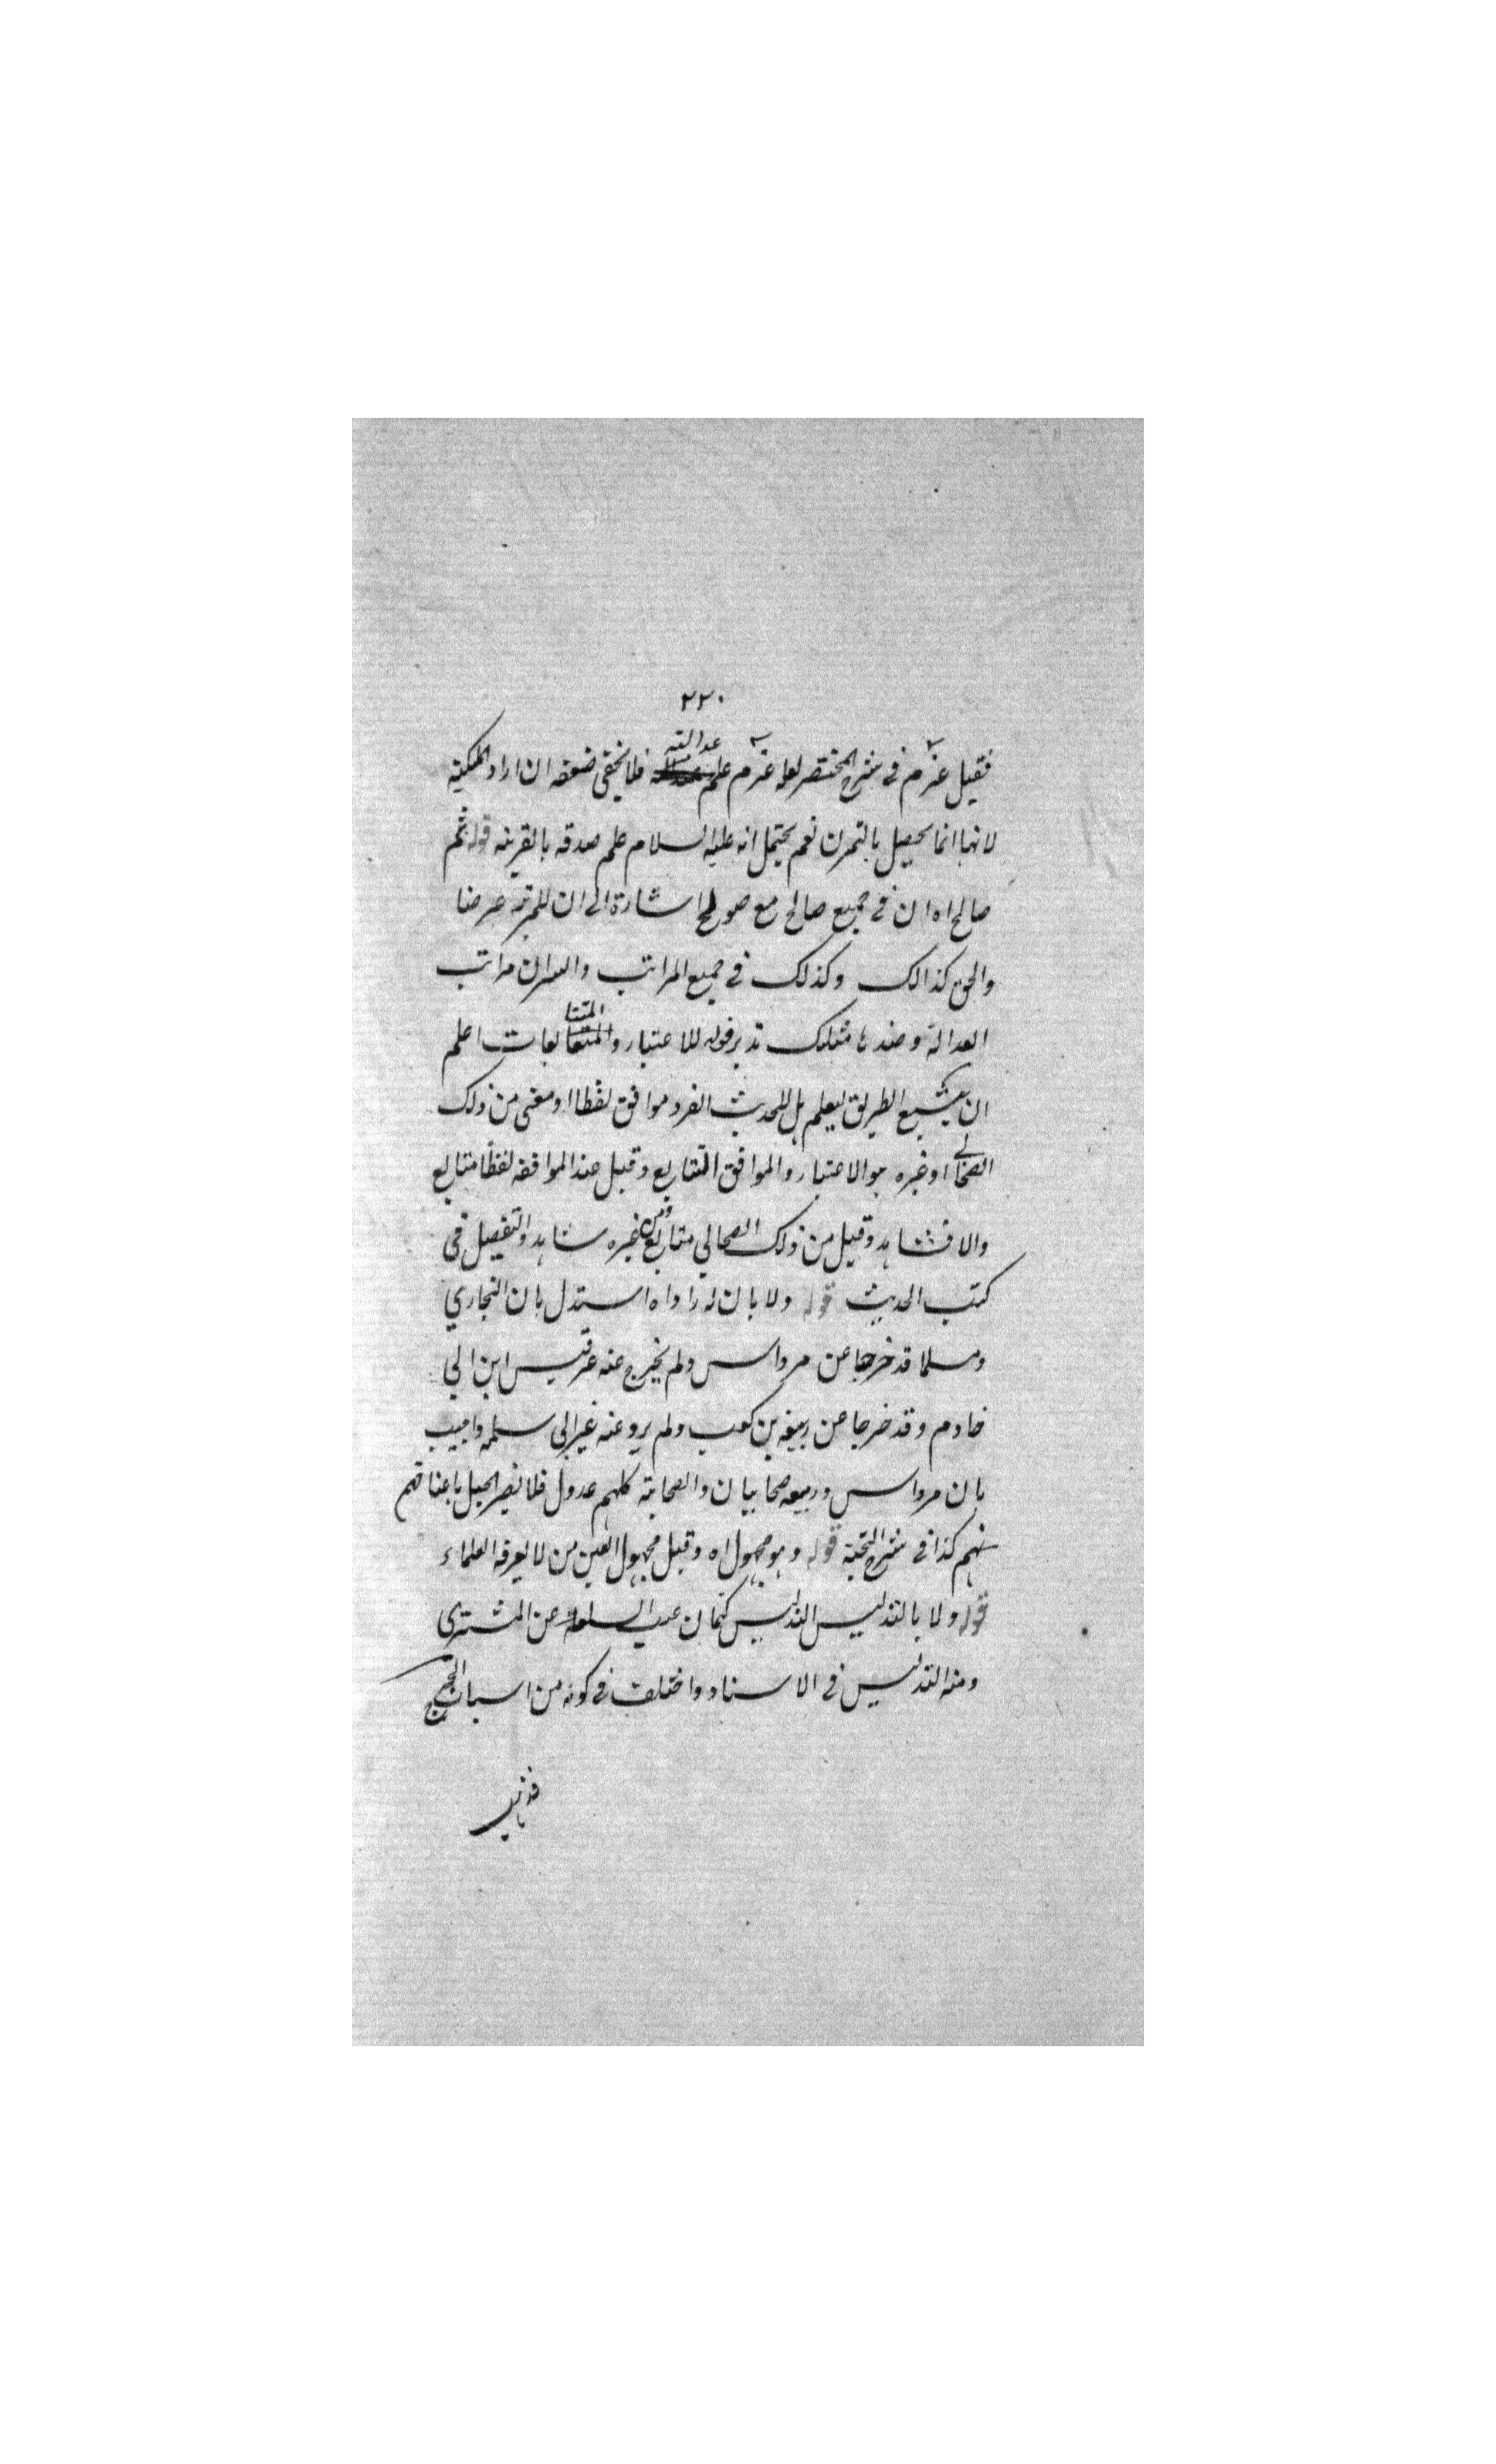 ٢٢٠
فقيل عزم في شرح المختصر لعله عزم علم عدالته فلا يخفى ضعفه ان اراد الملكية
لانها انما يحصل بالتمرن نعم يحتمل انه عليه السلام علم صدقه بالقرينه قوله ثم
صالح اه ان في جميع صالح مع صويلح اشارة الى ان للمرتبة عرضا
والحق كذالك وكذلك في جميع المراتب والسر ان مراتب
العدالة وضدها مشكك تدبر قوله للاعتبار والمتتابعات اعلم
ان تتبع الطريق ليعلم هل للحديث الفرد موافق لفظا او معنى من ذلك
الصحابي او غيره هو الاعتبار والموافق المتتابع وقيل عند الموافقه لفظا متابع
والا فشاهد وقيل من ذلك الصحابي متابع ومن غيره شاهد والتفصيل في
كتب الحديث قوله ولا بان له راو اه استدل بان البخاري
ومسلما قد خرجا عن مرداس ولم يخرج عنه غير قيس ابن ابي
خادم وقد خرجا عن ربيعه بن كعب ولم يرو عنه غير ابي سلمه واجيب
بان مرداس وربيعه صحابيان والصحابة كلهم عدول فلا يضر الجهل باعناقهم
نهم كذا في شرح النخبة قوله وهو مجهول اه وقيل مجهول العين من لا يعرفه العلماء
قوله ولا بالتدليس التدليس كتمان عيب السلعة عن المشتري
ومنه التدليس في الاسناد واختلف في كونه من اسباب الجرح
فذهب